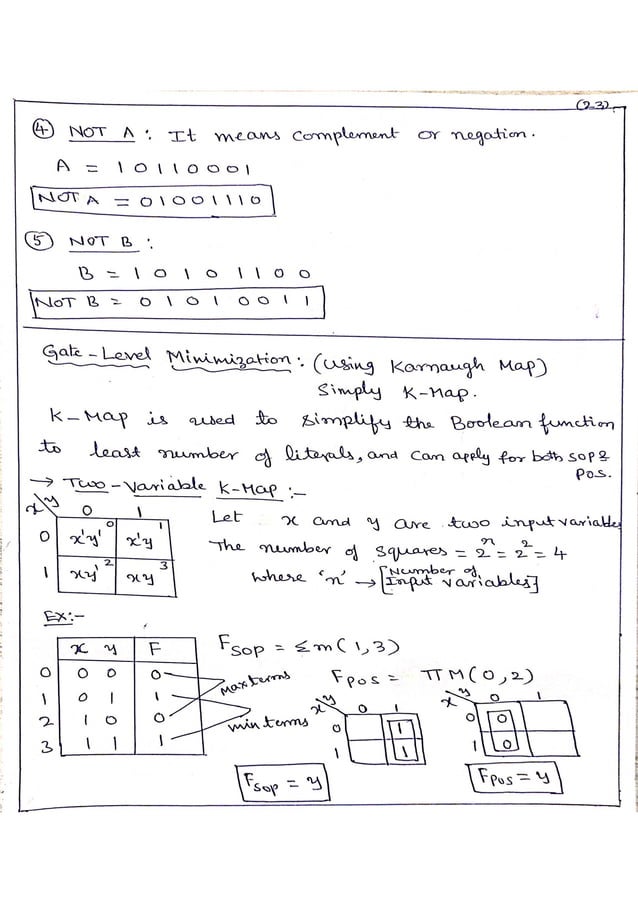 (23)
④ NOT A : It means complement or negation.
A = 10110001
NOT A = 01001110
⑤ NOT B :
B = 1 0 1 0 1 1 0 0
NOT B = 0 1 0 1 0 0 1 1
Gate-Level Minimization : (using Karnaugh Map)
Simply K-Map.
K-Map is used to simplify the Boolean function
to least number of literals, and can apply for both SOP &
POS.
→ Two-Variable K-Map :-
x y 0 1
0 x'y' 0 x'y 1
1 xy' 2 xy 3
Let x and y are two input variables
The number of squares = 2ⁿ = 2² = 4
where 'n' → [Number of
Input variables]
Ex:-
x y F
0 0 0 0
1 0 1 1
2 1 0 0
3 1 1 1
maxterms
minterms
FSOP = Σm(1,3)
FPOS = πM(0,2)
x y 0 1
0 1
1 1
FSOP = y
x y 0 1
0 0
1 0
FPOS = y